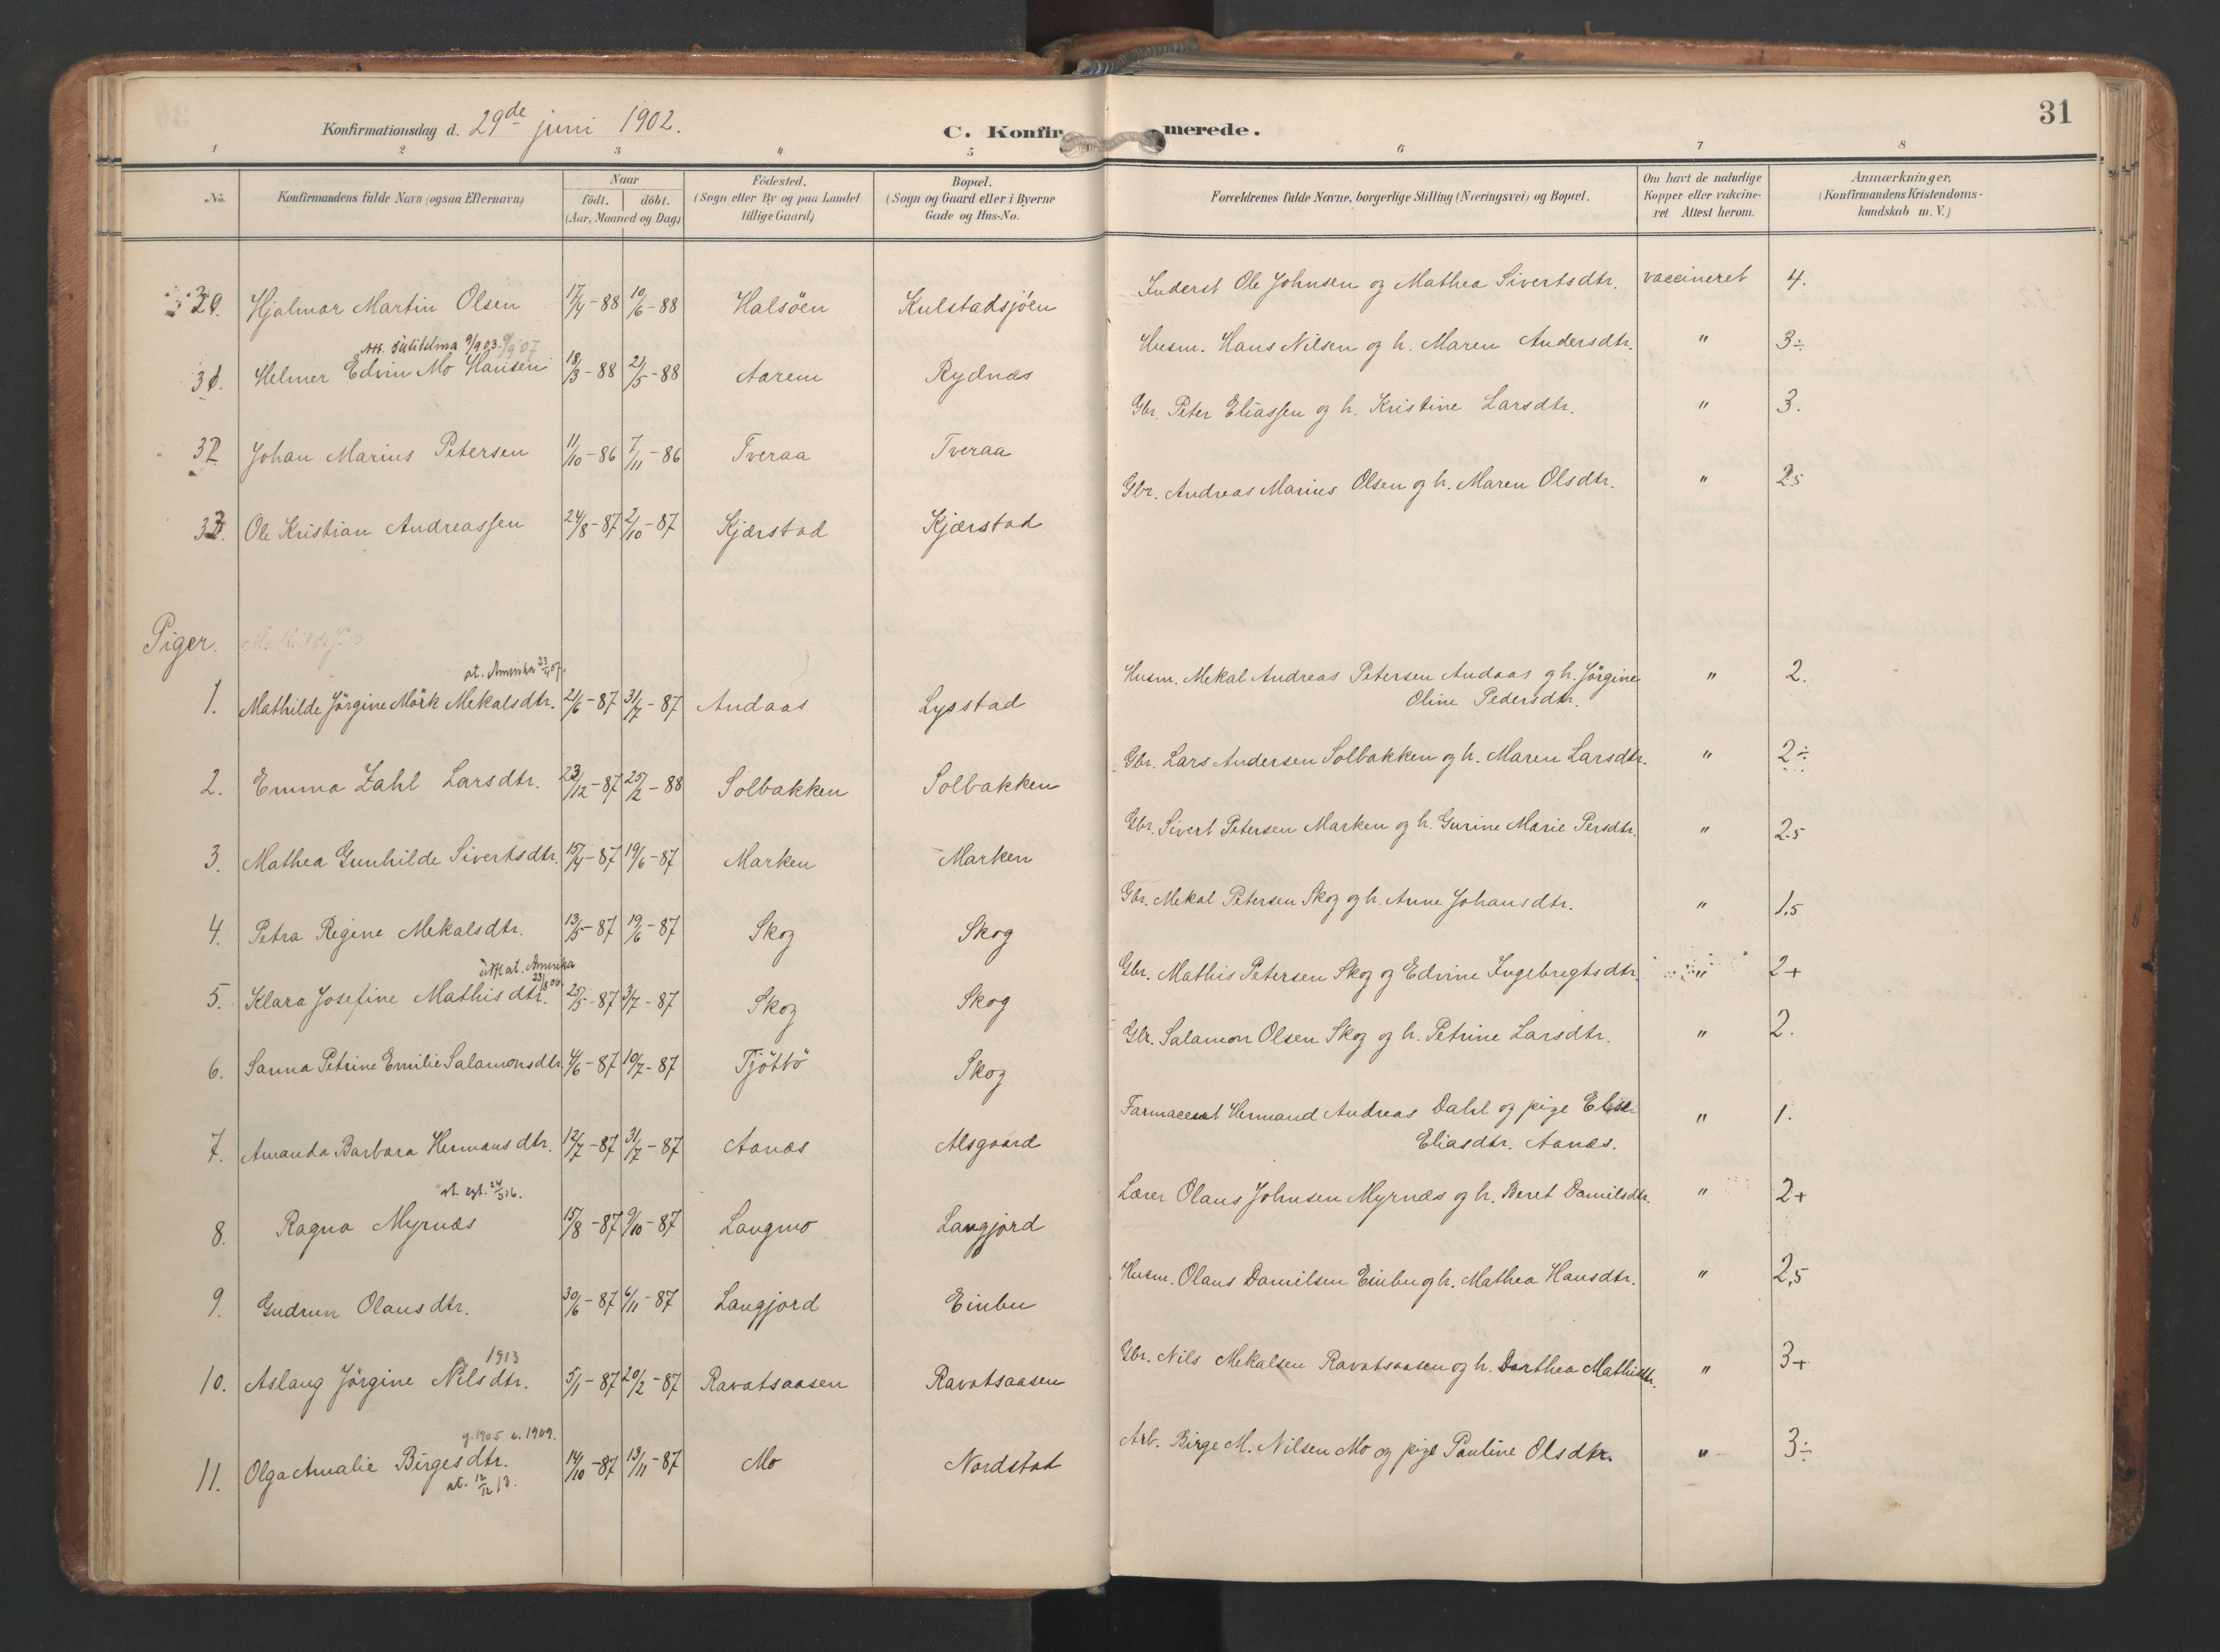 31
Konfirmationsdag d. 29de juni 1902.
C. Konfirmerede.
1 2 3 4 5 6 7 8
No.
Konfirmandens fulde Navn (ogsaa Efternavn)
Naar
födt. döbt.
(Aar, Maaned og Dag)
Födested.
(Sogn eller By og paa Landet
tillige Gaard)
Bopæl.
(Sogn og Gaard eller i Byerne
Gade og Hus-No.
Forældrenes fulde Navne, borgerlige Stilling (Næringsvei) og Bopæl.
Om havt de naturlige
Kopper eller vakcine-
ret Attest herom.
Anmærkninger,
(Konfirmandens Kristendoms-
kundskab m. V.)
Hjalmar Martin Olsen 17/4-88 10/6-88 Halsöen Kulstadsjöen Inderst Ole Johnsen og Mathea Sivertsdtr. vaccineret 4.
Att. Sulitelma 9/9 03. 9/9 07
31. Helmer Edvin Mo Hansen 18/3-88 21/5-88 Aarem Rydnæs Husm. Hans Nilsen og h. Maren Andersdtr. " 3÷
32 Johan Marius Petersen 11/10-86 7/11-86 Tveraa Tveraa Gbr. Peter Eliassen og h. Kristine Larsdtr. " 3.
33. Ole Kristian Andreassen 24/8-87 2/10-87 Kjærstad Kjærstad Gbr. Andreas Marius Olsen og h. Maren Olsdtr. " 2.5
Piger.
at. Amerika 23/4 07.
1. Mathilde Jörgine Mörk Mekalsdtr. 21/6-87 31/7-87 Andaas Lysstad Husm. Mekal Andreas Petersen Andaas og h. Jörgine " 2.
Oline Pedersdtr.
2. Emma Zahl Larsdtr. 23/12-87 25/2-88 Solbakken Solbakken Gbr. Lars Andersen Solbakken og h. Maren Larsdtr. " 2÷
3. Mathea Gunhilde Sivertsdtr. 15/4-87 19/6-87 Marken Marken Gbr. Sivert Petersen Marken og h. Gurine Marie Persdtr. " 2.5
4. Petra Regine Mekalsdtr. 13/5-87 19/6-87 Skog Skog Gbr. Mekal Petersen Skog og h. Anne Johansdtr. " 1.5
at. Amerika
23/8 06.
5. Klara Josefine Mathisdtr. 25/5-87 3/7-87 Skog Skog Gbr. Mathis Petersen Skog og Edvine Ingebregtsdtr. " 2+
6. Sanna Petrine Emilie Salamonsdtr. 4/6-87 10/7-87 Tjöttö Skog Gbr. Salamon Olsen Skog og h. Petrine Larsdtr. " 2.
7. Amanda Barbara Hermansdtr. 12/7-87 31/7-87 Aanæs Alsgaard Farmaceut Hermand Andreas Dahl og pige Else " 1.
Eliasdtr. Aanæs.
at. egt. 24/3 16.
8. Ragna Myrnæs 15/8-87 9/10-87 Langmo Langjord Lærer Olaus Johnsen Myrnæs og h. Beret Danielsdtr. " 2+
9. Gudrun Olausdtr. 30/6-87 6/11-87 Langjord Einbu Husm. Olaus Danielsen Einbu og h. Mathea Hansdtr. " 2,5
1913
10. Aslaug Jörgine Nilsdtr. 5/1-87 20/2-87 Ravatsaasen Ravatsaasen Gbr. Nils Mekalsen Ravatsaasen og h. Dorthea Mathisdtr. " 3+
g. 1905 6. 1909.
11. Olga Amalie Birgesdtr. 14/10-87 13/11-87 Mo Nordstad Arb. Birge M. Nilsen Mo og pige Pauline Olsdtr. " 3÷
at. 12/12 13.